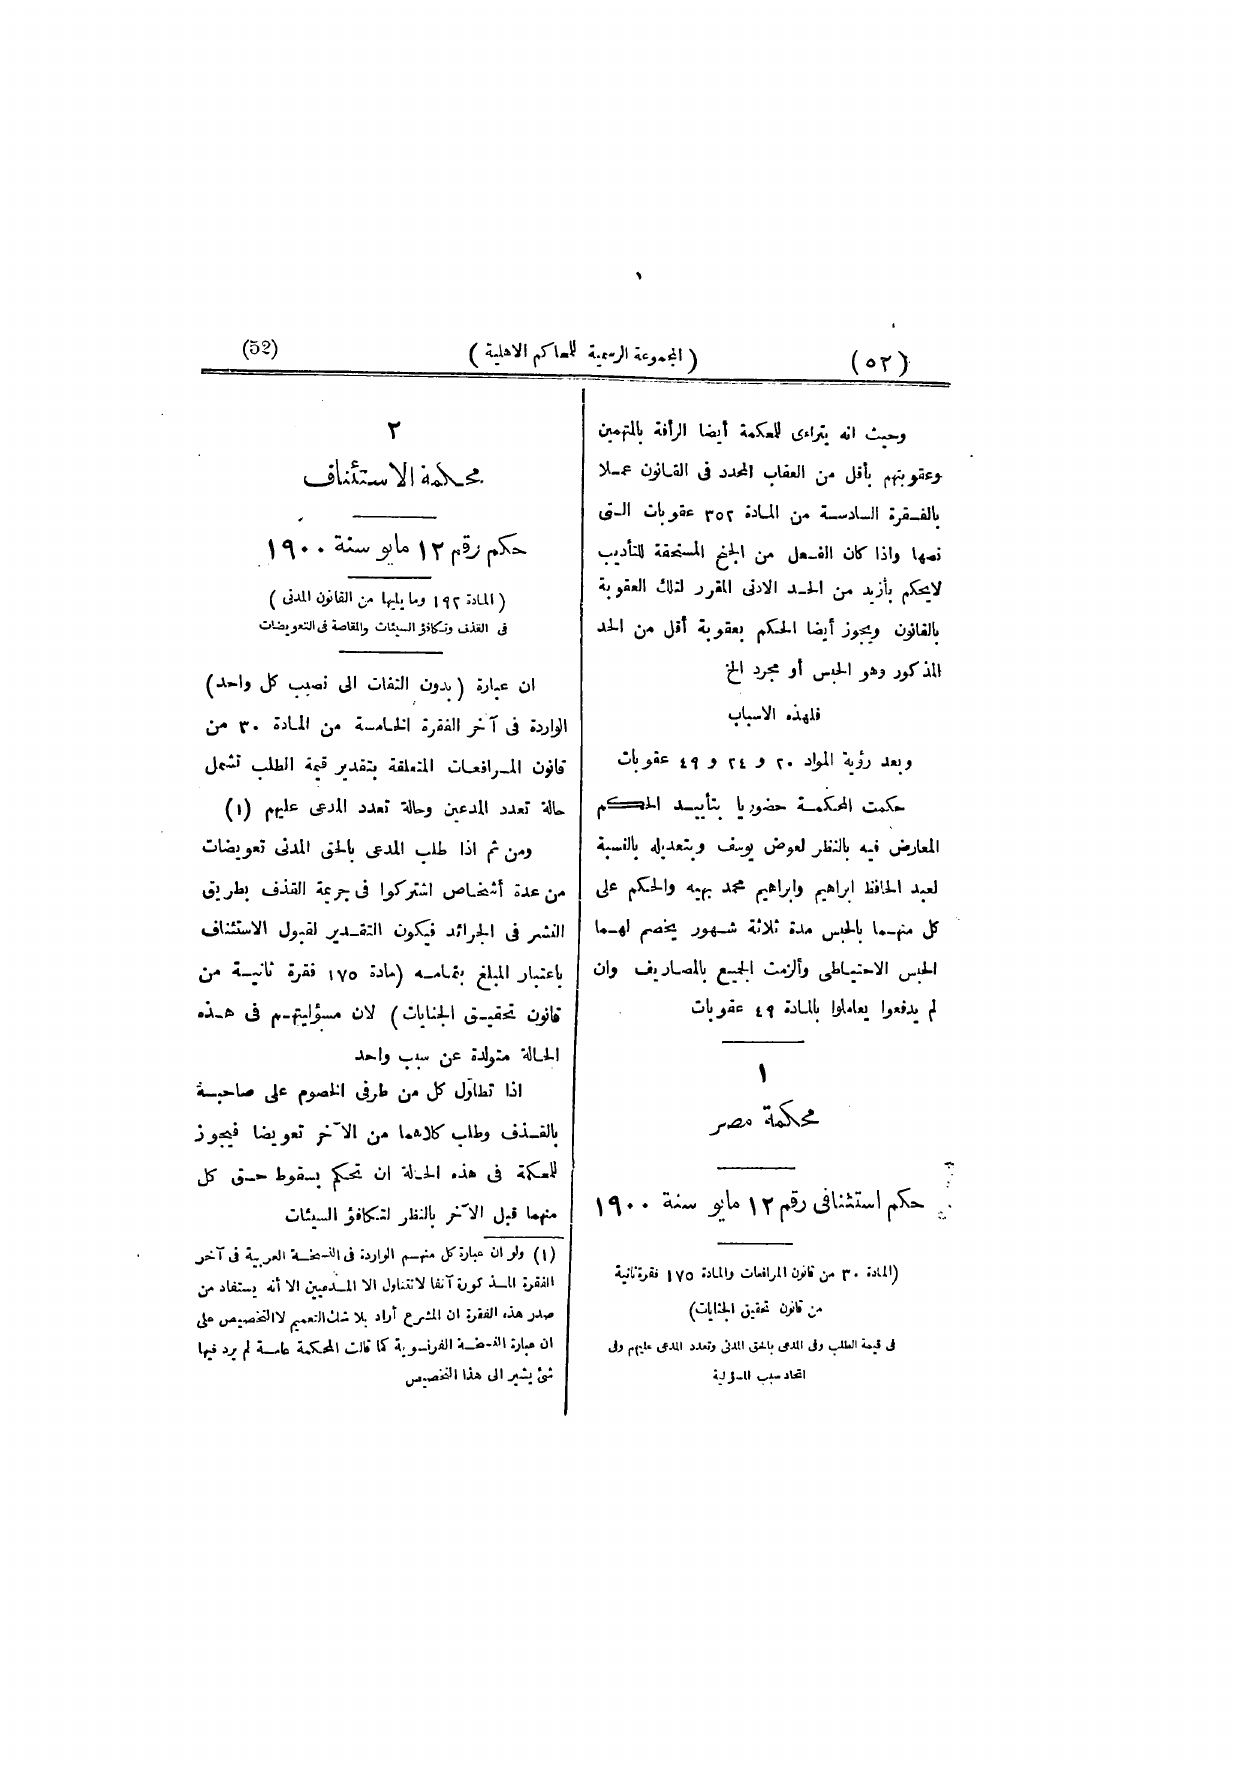 (٥٢)
(المجموعة الرسمية للمحاكم الاهلية)
(52)
وحيث انه يتراءى للمحكمة أيضا الرأفة بالمتهمين
وعقوبتهم بأقل من العقاب المحدد فى القانون عملا
بالفقرة السادسة من المادة ٣٥٢ عقوبات التى
نصها واذا كان الفعل من الجنح المستحقة للتأديب
لايحكم بأزيد من الحد الادنى المقرر لتلك العقوبة
بالقانون ويجوز أيضا الحكم بعقوبة أقل من الحد
المذكور وهو الحبس أو مجرد الخ
فلهذه الاسباب
وبعد رؤية المواد ٢٠ و ٢٤ و ٤٩ عقوبات
حكمت المحكمة حضوريا بتأييد الحكم
المعارض فيه بالنظر لعوض يوسف وبتعديله بالنسبة
لعبد الحافظ ابراهيم وابراهيم محمد بهيه والحكم على
كل منهما بالحبس مدة ثلاثة شهور يخصم لهما
الحبس الاحتياطى وألزمت الجميع بالمصاريف وان
لم يدفعوا يعاملوا بالمادة ٤٩ عقوبات
١
محكمة مصر
حكم استئنافى رقم ١٢ مايو سنة ١٩٠٠
(المادة ٣٠ من قانون المرافعات والمادة ١٧٥ فقرة ثانية
من قانون تحقيق الجنايات)
فى قيمة الطلب وفى المدعى بالحق المدنى وتعدد المدعى عليهم وفى
اتحاد سبب المسؤلية
٢
محكمة الاستئناف
حكم رقم ١٢ مايو سنة ١٩٠٠
(المادة ١٩٢ وما يليها من القانون المدنى)
فى القذف وتكافؤ السيئات والمقاصة فى التعويضات
ان عبارة (بدون التفات الى نصيب كل واحد)
الواردة فى آخر الفقرة الخامسة من المادة ٣٠ من
قانون المرافعات المتعلقة بتقدير قيمة الطلب تشمل
حالة تعدد المدعين وحالة تعدد المدعى عليهم (١)
ومن ثم اذا طلب المدعى بالحق المدنى تعويضات
من عدة أشخاص اشتركوا فى جريمة القذف بطريق
النشر فى الجرائد فيكون التقدير لقبول الاستئناف
باعتبار المبلغ بتمامه (مادة ١٧٥ فقرة ثانية من
قانون تحقيق الجنايات) لان مسؤليتهم فى هذه
الحالة متولدة عن سبب واحد
اذا تطاول كل من طرفى الخصوم على صاحبه
بالقذف وطلب كلاهما من الآخر تعويضا فيجوز
للمحكمة فى هذه الحالة ان تحكم بسقوط حق كل
منهما قبل الآخر بالنظر لتكافؤ السيئات
(١) ولو ان عبارة كل منهم الواردة فى النسخة العربية فى آخر
الفقرة المذكورة آنفا لا تتناول الا المدعيين الا أنه يستفاد من
صدر هذه الفقرة ان المشرع أراد بلا شك التعميم لا التخصيص على
ان عبارة النسخة الفرنسوية كما قالت المحكمة عامة لم يرد فيها
شئ يشير الى هذا التخصيص